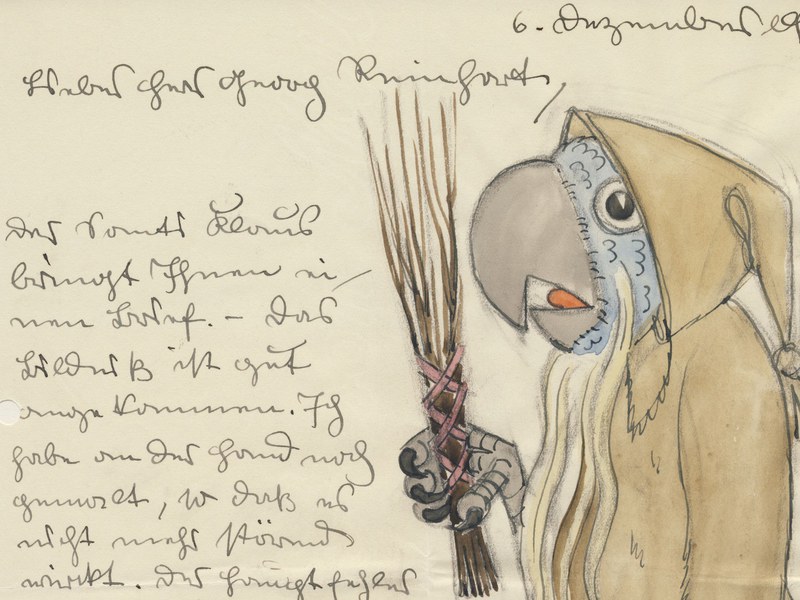 6. Dezember 19
Lieber Herr Georg Reinhart,
Der Samis Klaus
bringt Ihnen ei/
nen Brief. – Das
Bildniß ist gut
angekommen. Ich
habe an der Hand noch
gemalt, so daß es
nicht mehr störend
wirkt. Der Hauptfehler